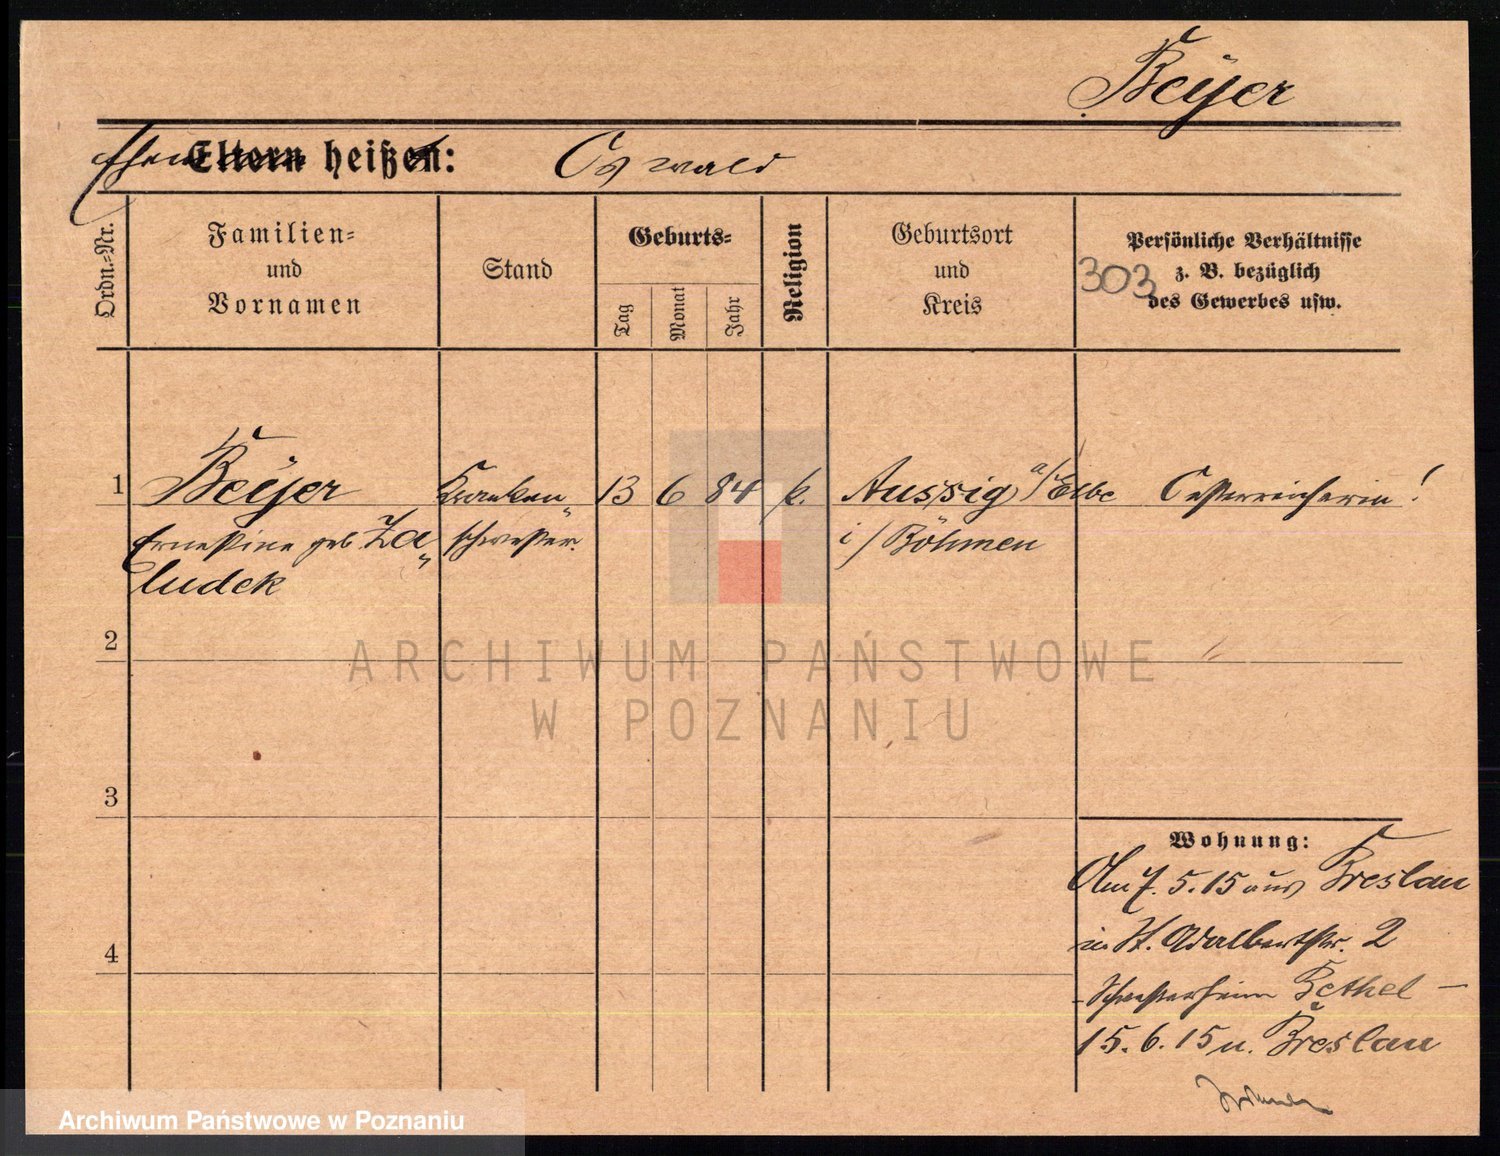 Beyer
Ehem Eltern heißen: Oswald
Ordn.-Nr.
Familien-
und
Vornamen
Stand
Geburts-
Tag
Monat
Jahr
Religion
Geburtsort
und
Kreis
Persönliche Verhältnisse
z. B. bezüglich
des Gewerbes usw.
303
1 Beyer Kranken„ 13 6 84 k. Aussig a/Elbe Oesterreicherin!
Ernestine geb. Za„ schwester. i/Böhmen
ludek
2
3
4
Wohnung:
Am 7.5.15 aus Breslau
in St. Adalbertstr. 2
- Schwesterheim Bethel -
15.6.15 n. Breslau
ARCHIWUM PAŃSTWOWE
W POZNANIU
Archiwum Państwowe w Poznaniu